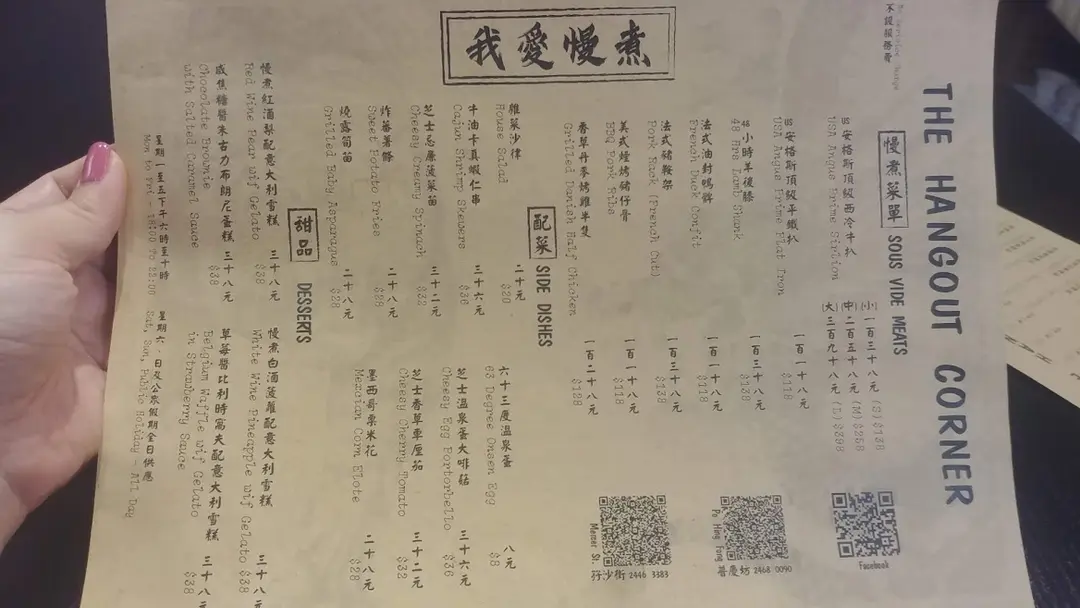 不設服務費
No Service Charge
我愛慢煮
THE HANGOUT CORNER
慢煮菜單 SOUS VIDE MEATS
US 安格斯頂級西冷牛扒
USA Angus Prime Sirlion
(小) 一百三十八元 (S) $138
(中) 二百五十八元 (M) $258
(大) 三百九十八元 (L) $398
US 安格斯頂級平鐵扒 一百一十八元
USA Angus Prime Flat Iron $118
48 小時羊後膝 一百三十八元
48 Hrs Lamb Shank $138
法式油封鴨髀 一百一十八元
French Duck Confit $118
法式豬鞍架 一百三十八元
Pork Rack (French Cut) $138
美式煙烤豬仔骨 一百一十八元
BBQ Pork Ribs $118
香草丹麥烤雞半隻 一百二十八元
Grilled Danish Half Chicken $128
Facebook
Po Hing Fong
普慶坊 2468 0090
Mercer St.
孖沙街 2446 3383
配菜 SIDE DISHES
雜菜沙律 二十元
House Salad $20
六十三度溫泉蛋 八元
63 Degree Onsen Egg $8
牛油卡真蝦仁串 三十六元
Cajun Shrimp Skewers $36
芝士溫泉蛋大啡菇 三十六元
Cheesy Egg Portorbello $36
芝士忌廉菠菜苗 三十二元
Cheesy Creamy Spinach $32
芝士香草車厘茄 三十二元
Cheesy Cherry Tomato $32
炸蕃薯條 二十八元
Sweet Potato Fries $28
墨西哥粟米花 二十八元
Mexcian Corn Elote $28
燒露筍苗 二十八元
Grilled Baby Asparagus $28
甜品 DESSERTS
慢煮紅酒梨配意大利雪糕 三十八元
Red Wine Pear wif Gelato $38
慢煮白酒菠蘿配意大利雪糕 三十八元
White Wine Pineapple wif Gelato $38
咸焦糖醬朱古力布朗尼蛋糕 三十八元
Chocolate Brownie $38
with Salted Caramel Sauce
草莓醬比利時窩夫配意大利雪糕 三十八元
Belgium Waffle wif Gelato $38
in Strawberry Sauce
星期一至五下午六時至十時 星期六、日及公眾假期全日供應
Mon to Fri - 18:00 To 22:00 Sat, Sun, Public Holiday - All Day